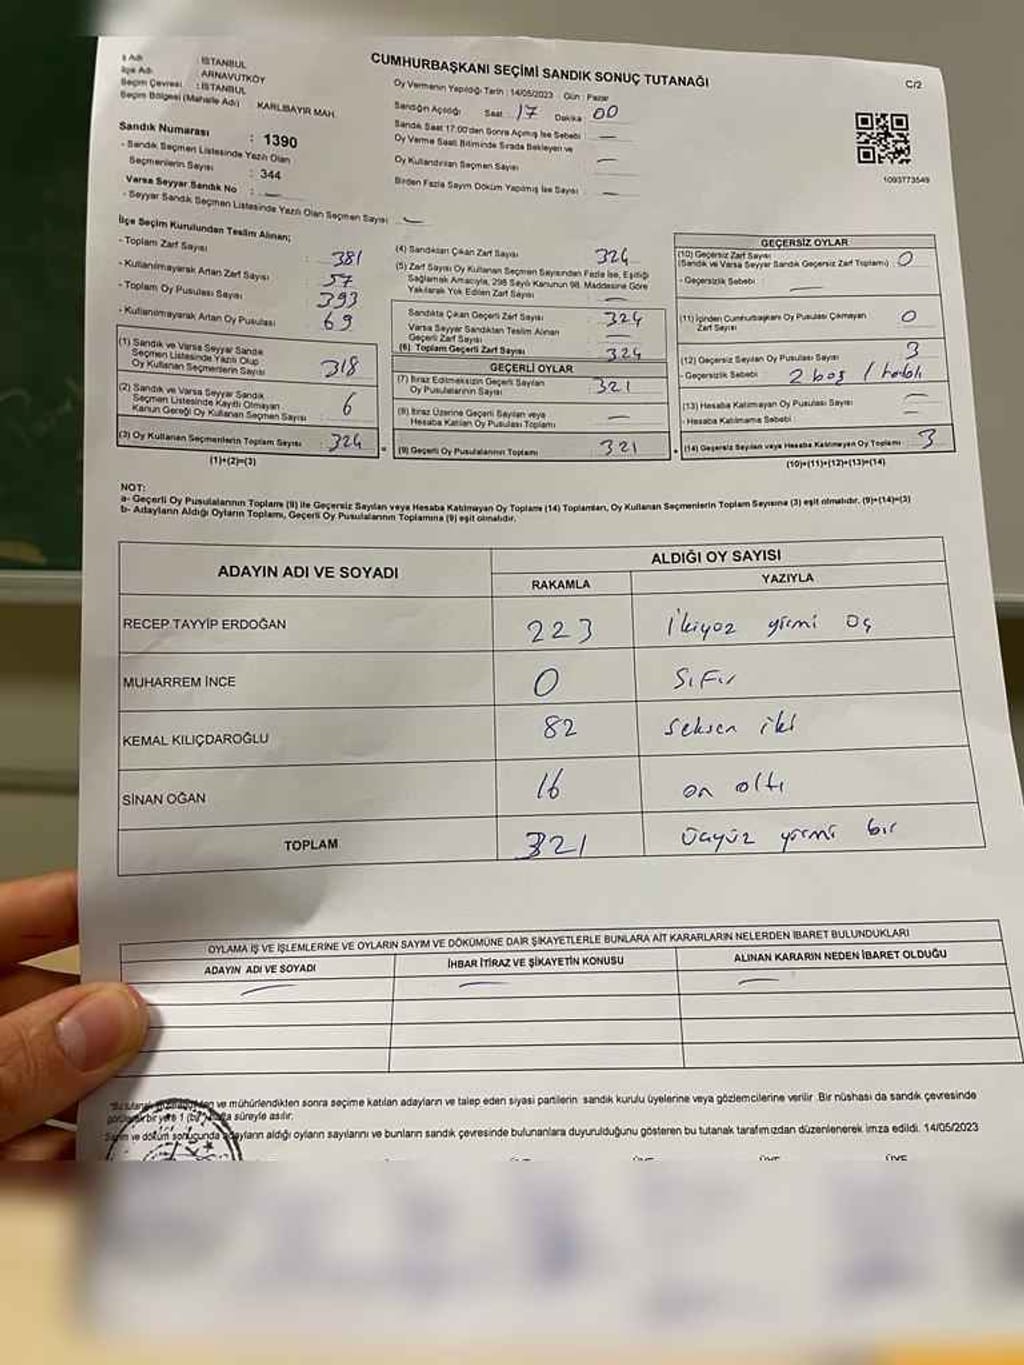 CUMHURBAŞKANI SEÇİMİ SANDIK SONUÇ TUTANAĞI
C/2
İl Adı : İSTANBUL
İlçe Adı : ARNAVUTKÖY
Seçim Çevresi : İSTANBUL
Seçim Bölgesi (Mahalle Adı) KARLIBAYIR MAH.
Sandık Numarası : 1390
- Sandık Seçmen Listesinde Yazılı Olan
Seçmenlerin Sayısı : 344
Varsa Seyyar Sandık No : —
- Seyyar Sandık Seçmen Listesinde Yazılı Olan Seçmen Sayısı : —
Oy Vermenin Yapıldığı Tarih : 14/05/2023 Gün : Pazar
Sandığın Açıldığı Saat : 17 Dakika : 00
Sandık Saat 17:00'den Sonra Açılmış İse Sebebi : —
Oy Verme Saati Bitiminde Sırada Bekleyen ve
Oy Kullandırılan Seçmen Sayısı —
Birden Fazla Sayım Döküm Yapılmış İse Sayısı : —
1093773549
İlçe Seçim Kurulundan Teslim Alınan;
- Toplam Zarf Sayısı : 381
- Kullanılmayarak Artan Zarf Sayısı : 57
- Toplam Oy Pusulası Sayısı : 393
- Kullanılmayarak Artan Oy Pusulası : 69
(1) Sandık ve Varsa Seyyar Sandık
Seçmen Listesinde Yazılı Olup
Oy Kullanan Seçmenlerin Sayısı : 318
(2) Sandık ve Varsa Seyyar Sandık
Seçmen Listesinde Kayıtlı Olmayan
Kanun Gereği Oy Kullanan Seçmen Sayısı : 6
(3) Oy Kullanan Seçmenlerin Toplam Sayısı : 324
(1)+(2)=(3)
(4) Sandıktan Çıkan Zarf Sayısı : 324
(5) Zarf Sayısı Oy Kullanan Seçmen Sayısından Fazla İse, Eşitliği
Sağlamak Amacıyla, 298 Sayılı Kanunun 98. Maddesine Göre
Yakılarak Yok Edilen Zarf Sayısı : —
Sandıkta Çıkan Geçerli Zarf Sayısı : 324
Varsa Seyyar Sandıktan Teslim Alınan
Geçerli Zarf Sayısı : —
(6) Toplam Geçerli Zarf Sayısı : 324
GEÇERLİ OYLAR
(7) İtiraz Edilmeksizin Geçerli Sayılan
Oy Pusulalarının Sayısı : 321
(8) İtiraz Üzerine Geçerli Sayılan veya
Hesaba Katılan Oy Pusulası Toplamı : —
(9) Geçerli Oy Pusulalarının Toplamı : 321
GEÇERSİZ OYLAR
(10) Geçersiz Zarf Sayısı
(Sandık ve Varsa Seyyar Sandık Geçersiz Zarf Toplamı) : 0
- Geçersizlik Sebebi : —
(11) İçinden Cumhurbaşkanı Oy Pusulası Çıkmayan
Zarf Sayısı : 0
(12) Geçersiz Sayılan Oy Pusulası Sayısı : 3
- Geçersizlik Sebebi : 2 boş 1 hatalı
(13) Hesaba Katılmayan Oy Pusulası Sayısı : —
- Hesaba Katılmama Sebebi : —
(14) Geçersiz Sayılan veya Hesaba Katılmayan Oy Toplamı : 3
(10)+(11)+(12)+(13)=(14)
NOT:
a- Geçerli Oy Pusulalarının Toplamı (9) ile Geçersiz Sayılan veya Hesaba Katılmayan Oy Toplamı (14) Toplamları, Oy Kullanan Seçmenlerin Toplam Sayısına (3) eşit olmalıdır. (9)+(14)=(3)
b- Adayların Aldığı Oyların Toplamı, Geçerli Oy Pusulalarının Toplamına (9) eşit olmalıdır.
ADAYIN ADI VE SOYADI ALDIĞI OY SAYISI
RAKAMLA YAZIYLA
RECEP TAYYİP ERDOĞAN 223 İkiyüz yirmi üç
MUHARREM İNCE 0 Sıfır
KEMAL KILIÇDAROĞLU 82 Seksen iki
SİNAN OĞAN 16 on altı
TOPLAM 321 üçyüz yirmi bir
OYLAMA İŞ VE İŞLEMLERİNE VE OYLARIN SAYIM VE DÖKÜMÜNE DAİR ŞİKAYETLERLE BUNLARA AİT KARARLARIN NELERDEN İBARET BULUNDUKLARI
ADAYIN ADI VE SOYADI İHBAR İTİRAZ VE ŞİKAYETİN KONUSU ALINAN KARARIN NEDEN İBARET OLDUĞU
— — —
ve mühürlendikten sonra seçime katılan adayların ve talep eden siyasi partilerin sandık kurulu üyelerine veya gözlemcilerine verilir. Bir nüshası da sandık çevresinde
bir yere 1 süreyle asılır.
Sayım ve döküm sonucunda adayların aldığı oyların sayılarını ve bunların sandık çevresinde bulunanlara duyurulduğunu gösteren bu tutanak tarafımızdan düzenlenerek imza edildi. 14/05/2023